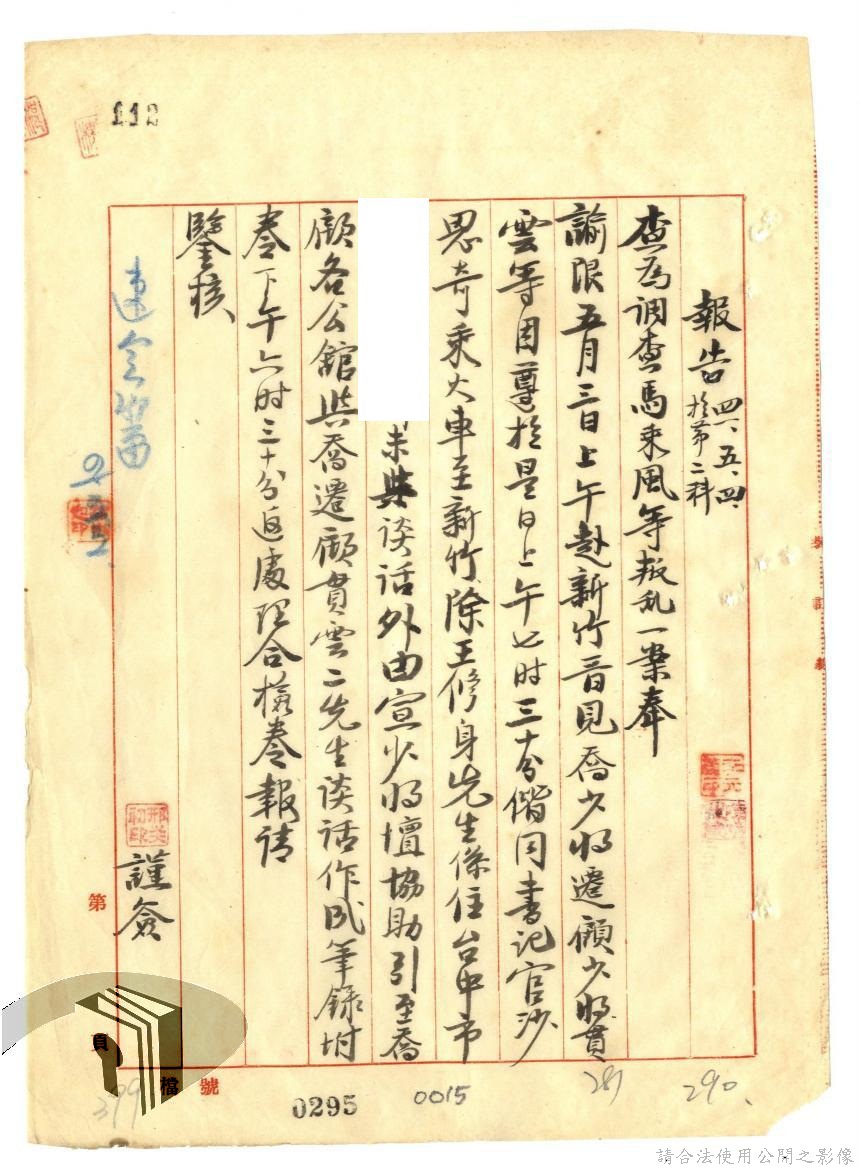 112
報告 四一、五、四、
於第二科
查為調查馬乘風等叛乱一案奉
諭限五月三日上午赴新竹晉見喬少将遷顧少将貫
雲等因遵於是日上午七时三十分偕同書记官沙
思奇乘火車至新竹除王修身先生係住台中市
未與谈话外由宣少将壇協助引至喬
顧各公舘與喬遷顧貫雲二先生谈话作成筆錄坿
卷下午六时三十分返處理合檢卷報请
鑒核
謹簽
第
頁
檔號
0295
0015
281
290
399
請合法使用公開之影像